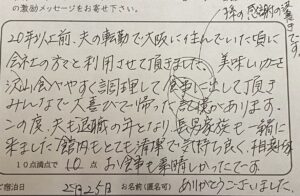 の激励メッセージをお寄せ下さい。
孫の感謝の涙です。
20年以上前、夫の転勤で大阪に住んでいた頃に
会社の方々と利用させて頂きました。美味しいカニを
沢山食べやすく調理して食事に出して頂き
みんなで大喜びで帰った記憶があります。
この度、夫も退職の年となり、長男家族も一緒に
来ました。館内もとても清潔で気持ち良く、
10点満点で 10 点 お食事も素晴らしかったです。
ご宿泊日 2月25日 お名前(匿名可) ありがとうございました。